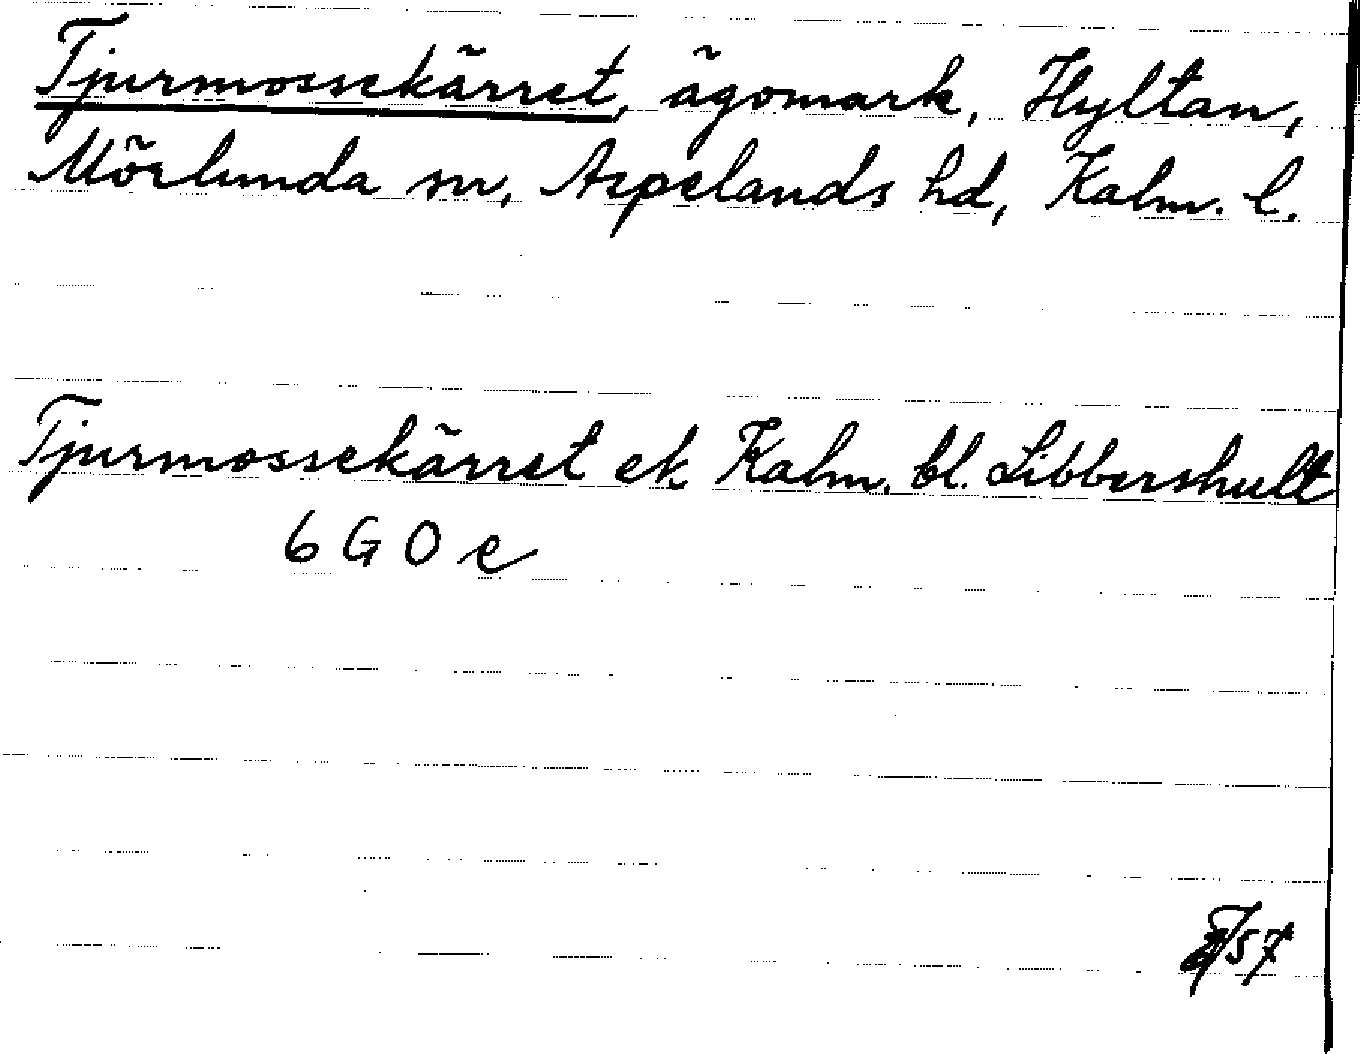 Tjurmossekärret, ägomark, Hyltan,
Mörlunda sn, Aspelands hd, Kalm. l.
Tjurmossekärret ek Kalm. bl. Libbershult
6 G 0 e